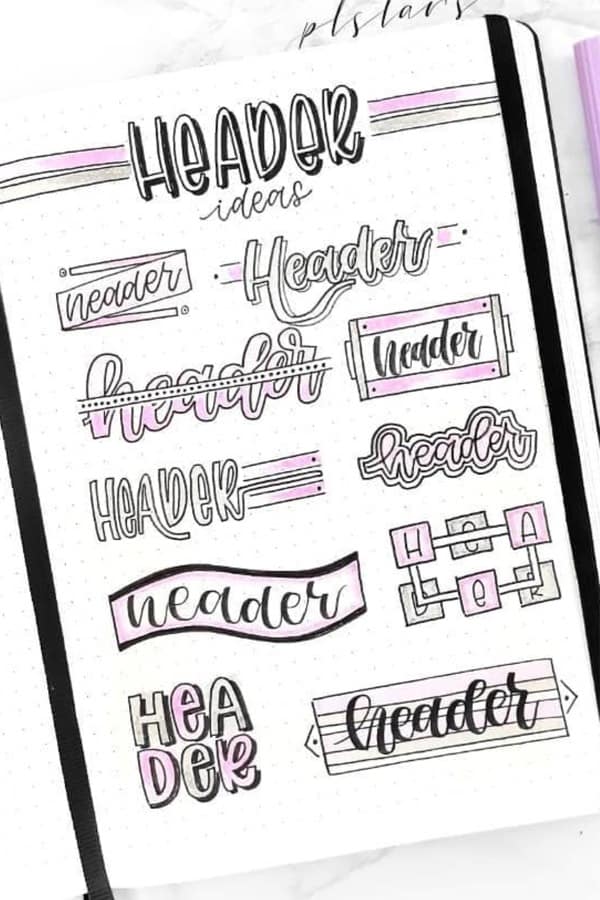 plstars
HEADER
ideas
header
Header
header
header
HEADER
header
header
HEA
DeR
HEA
DER
header